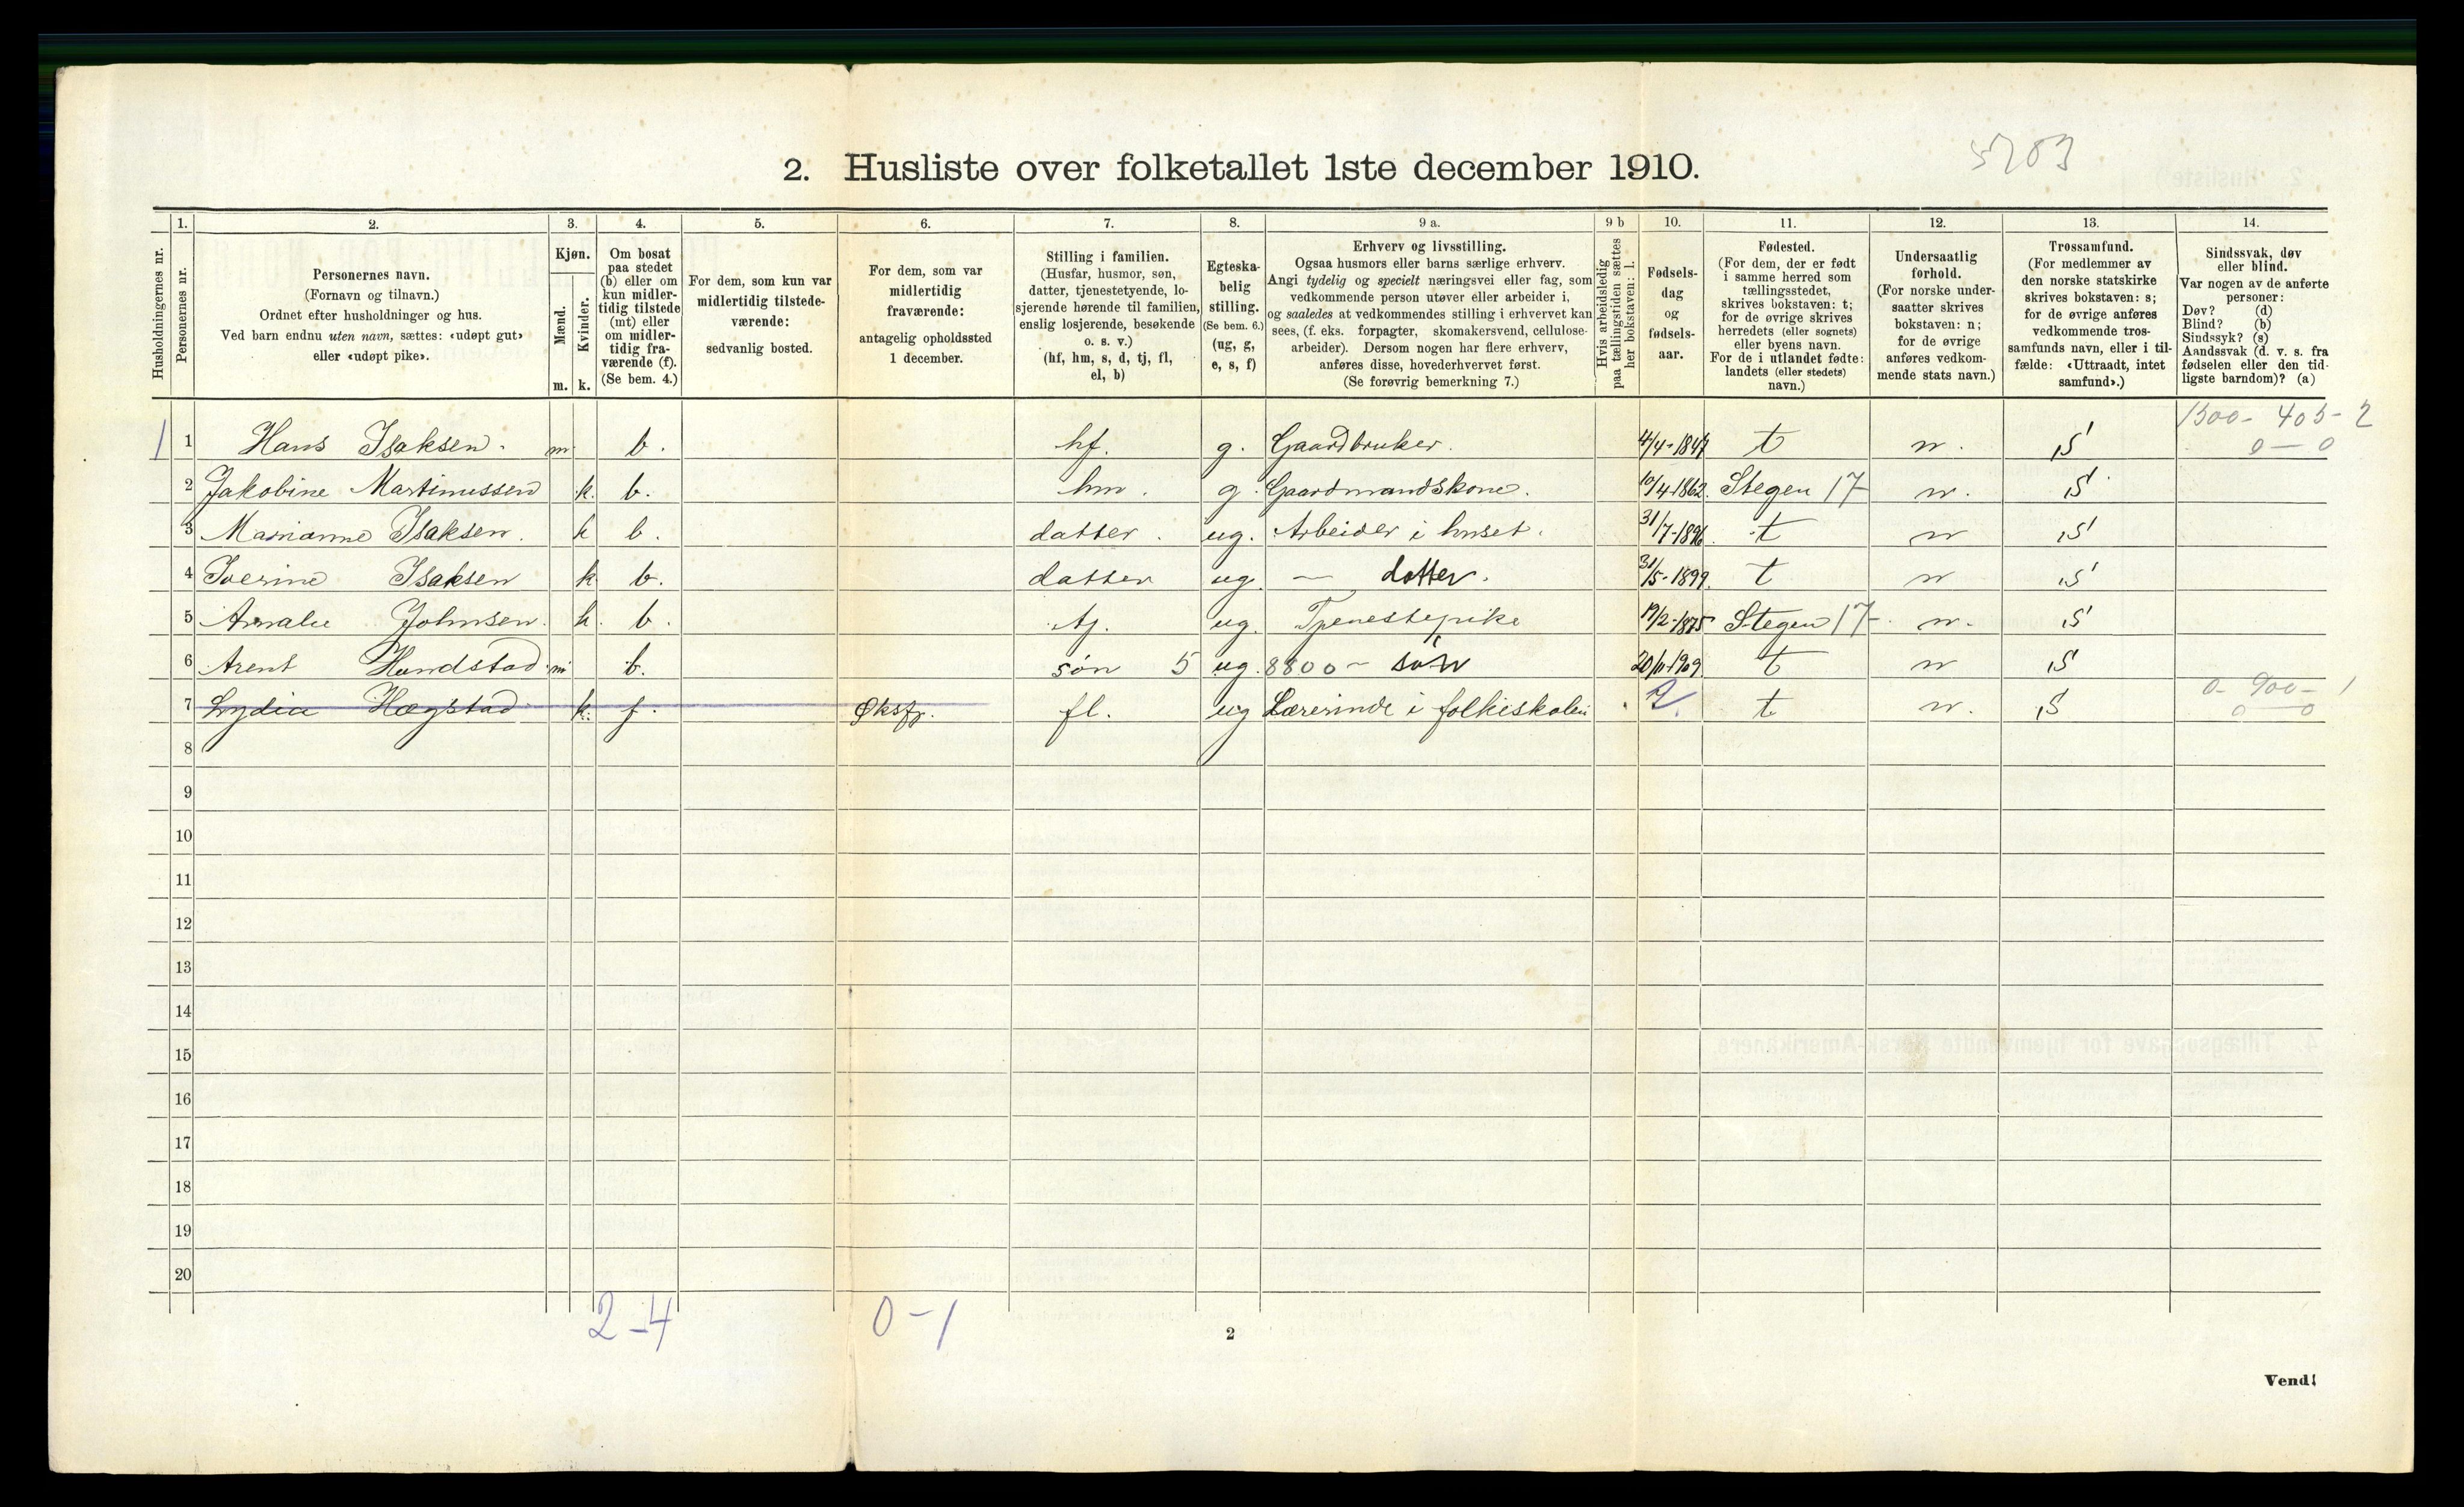 5203
2. Husliste over folketallet 1ste december 1910.
Husholdningernes nr.
1. Personernes nr.
2. Personernes navn.
(Fornavn og tilnavn.)
Ordnet efter husholdninger og hus.
Ved barn endnu uten navn, sættes: «udøpt gut»
eller «udøpt pike».
3. Kjøn.
Mænd. Kvinder.
m. k.
4. Om bosat
paa stedet
(b) eller om
kun midler-
tidig tilstede
(mt) eller
om midler-
tidig fra-
værende (f).
(Se bem. 4.)
5. For dem, som kun var
midlertidig tilstede-
værende:
sedvanlig bosted.
6. For dem, som var
midlertidig
fraværende:
antagelig opholdssted
1 december.
7. Stilling i familien.
(Husfar, husmor, søn,
datter, tjenestetyende, lo-
sjerende hørende til familien,
enslig losjerende, besøkende
o. s. v.)
(hf, hm, s, d, tj, fl,
el, b)
8. Egteska-
belig
stilling.
(Se bem. 6.)
(ug, g,
e, s, f)
9 a. Erhverv og livsstilling.
Ogsaa husmors eller barns særlige erhverv.
Angi tydelig og specielt næringsvei eller fag, som
vedkommende person utøver eller arbeider i,
og saaledes at vedkommendes stilling i erhvervet kan
sees, (f. eks. forpagter, skomakersvend, cellulose-
arbeider). Dersom nogen har flere erhverv,
anføres disse, hovederhvervet først.
(Se forøvrig bemerkning 7.)
9 b Hvis arbeidsledig
paa tællingstiden sættes
her bokstaven: l.
10. Fødsels-
dag
og
fødsels-
aar.
11. Fødested.
(For dem, der er født
i samme herred som
tællingsstedet,
skrives bokstaven: t;
for de øvrige skrives
herredets (eller sognets)
eller byens navn.
For de i utlandet fødte:
landets (eller stedets)
navn.)
12. Undersaatlig
forhold.
(For norske under-
saatter skrives
bokstaven: n;
for de øvrige
anføres vedkom-
mende stats navn.)
13. Trossamfund.
(For medlemmer av
den norske statskirke
skrives bokstaven: s;
for de øvrige anføres
vedkommende tros-
samfunds navn, eller i til-
fælde: «Uttraadt, intet
samfund».)
14. Sindssvak, døv
eller blind.
Var nogen av de anførte
personer:
Døv? (d)
Blind? (b)
Sindssyk? (s)
Aandssvak (d. v. s. fra
fødselen eller den tid-
ligste barndom)? (a)
1500 - 405 - 2
1 1 Hans Isaksen. m b. hf. g. Gaardbruker. 4/4-1847 t n. S 0 — 0
2 Jakobine Martinussen k. b. hm. g. Gaardmandskone. 10/4-1862. Stegen 17 n. S
3 Marianne Isaksen. k b. datter. ug. Arbeider i huset. 31/7-1896. t n S
4 Iverine Isaksen k b. datter ug. — datter. 31/5-1899. t n S
5 Amalie Johnsen. k. b. tj. ug. Tjenestepike 19/2-1875 Stegen 17 n. S
6 Arent Hundstad m b. søn 5 ug. 8800 - søn 20/11-1909. t n S
0 - 900 - 1
7 Lydia Hægstad k. f. Øksfj. fl. ug Lærerinde i folkeskolen ?. t n. S 0 — 0
8
9
10
11
12
13
14
15
16
17
18
19
20
2-4 0-1
2
Vend!